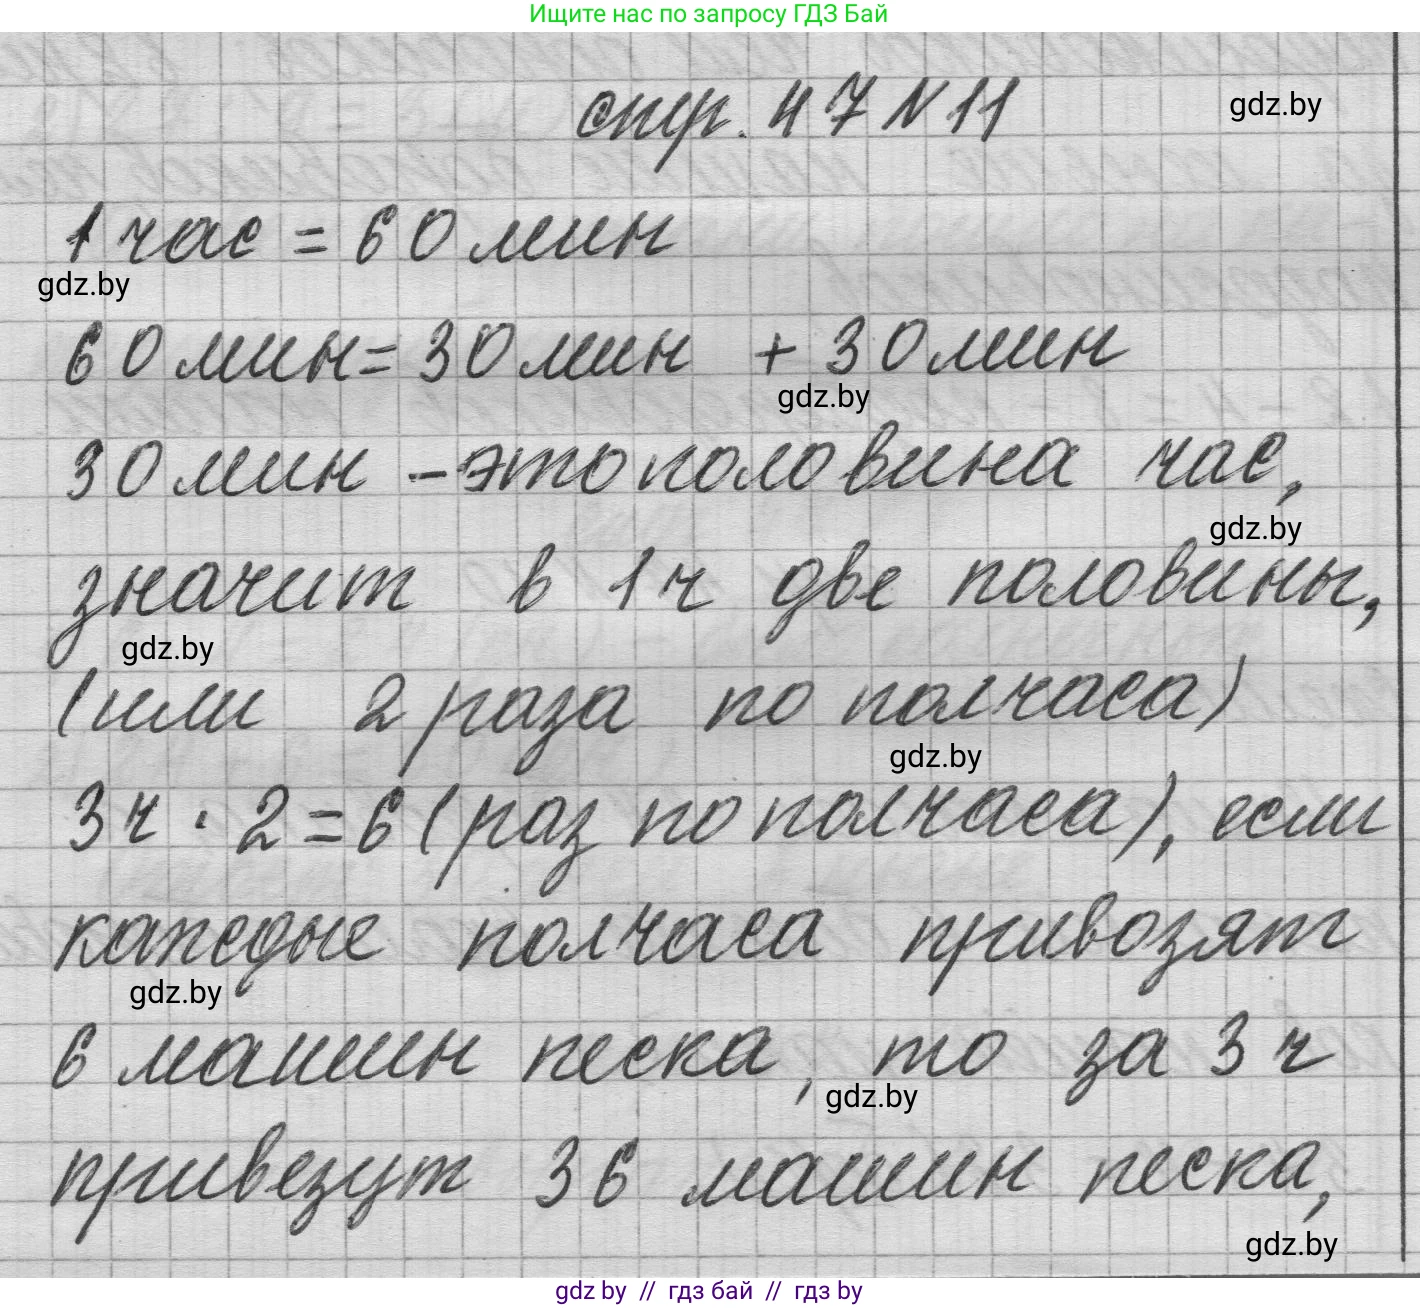 Ищите нас по запросу ГДЗ Бай
стр. 47 N 11
gdz.by
1 час = 60 мин
gdz.by
60 мин = 30 мин + 30 мин
gdz.by
30 мин - это половина час,
gdz.by
значит в 1 ч две половины,
gdz.by
(или 2 раза по полчаса)
gdz.by
3 ч · 2 = 6 (раз по полчаса), если
каждые полчаса привозят
gdz.by
6 машин песка, то за 3 ч
gdz.by
привезут 36 машин песка,
gdz.by
gdz.by // гдз бай // гдз by